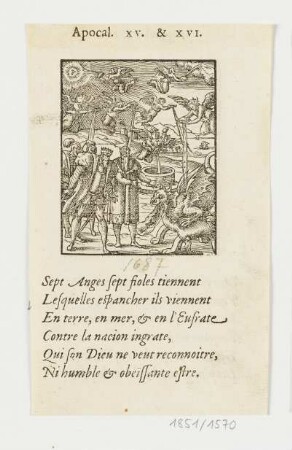 Apocal. XV. & XVI.
1687
Sept Anges ſept fioles tiennent
Leſquelles eſpancher ils viennent
En terre, en mer, & en l'Eufrate
Contre la nacion ingrate,
Qui ſon Dieu ne veut reconnoitre,
Ni humble & obeiſſante eſtre.
1851/1570